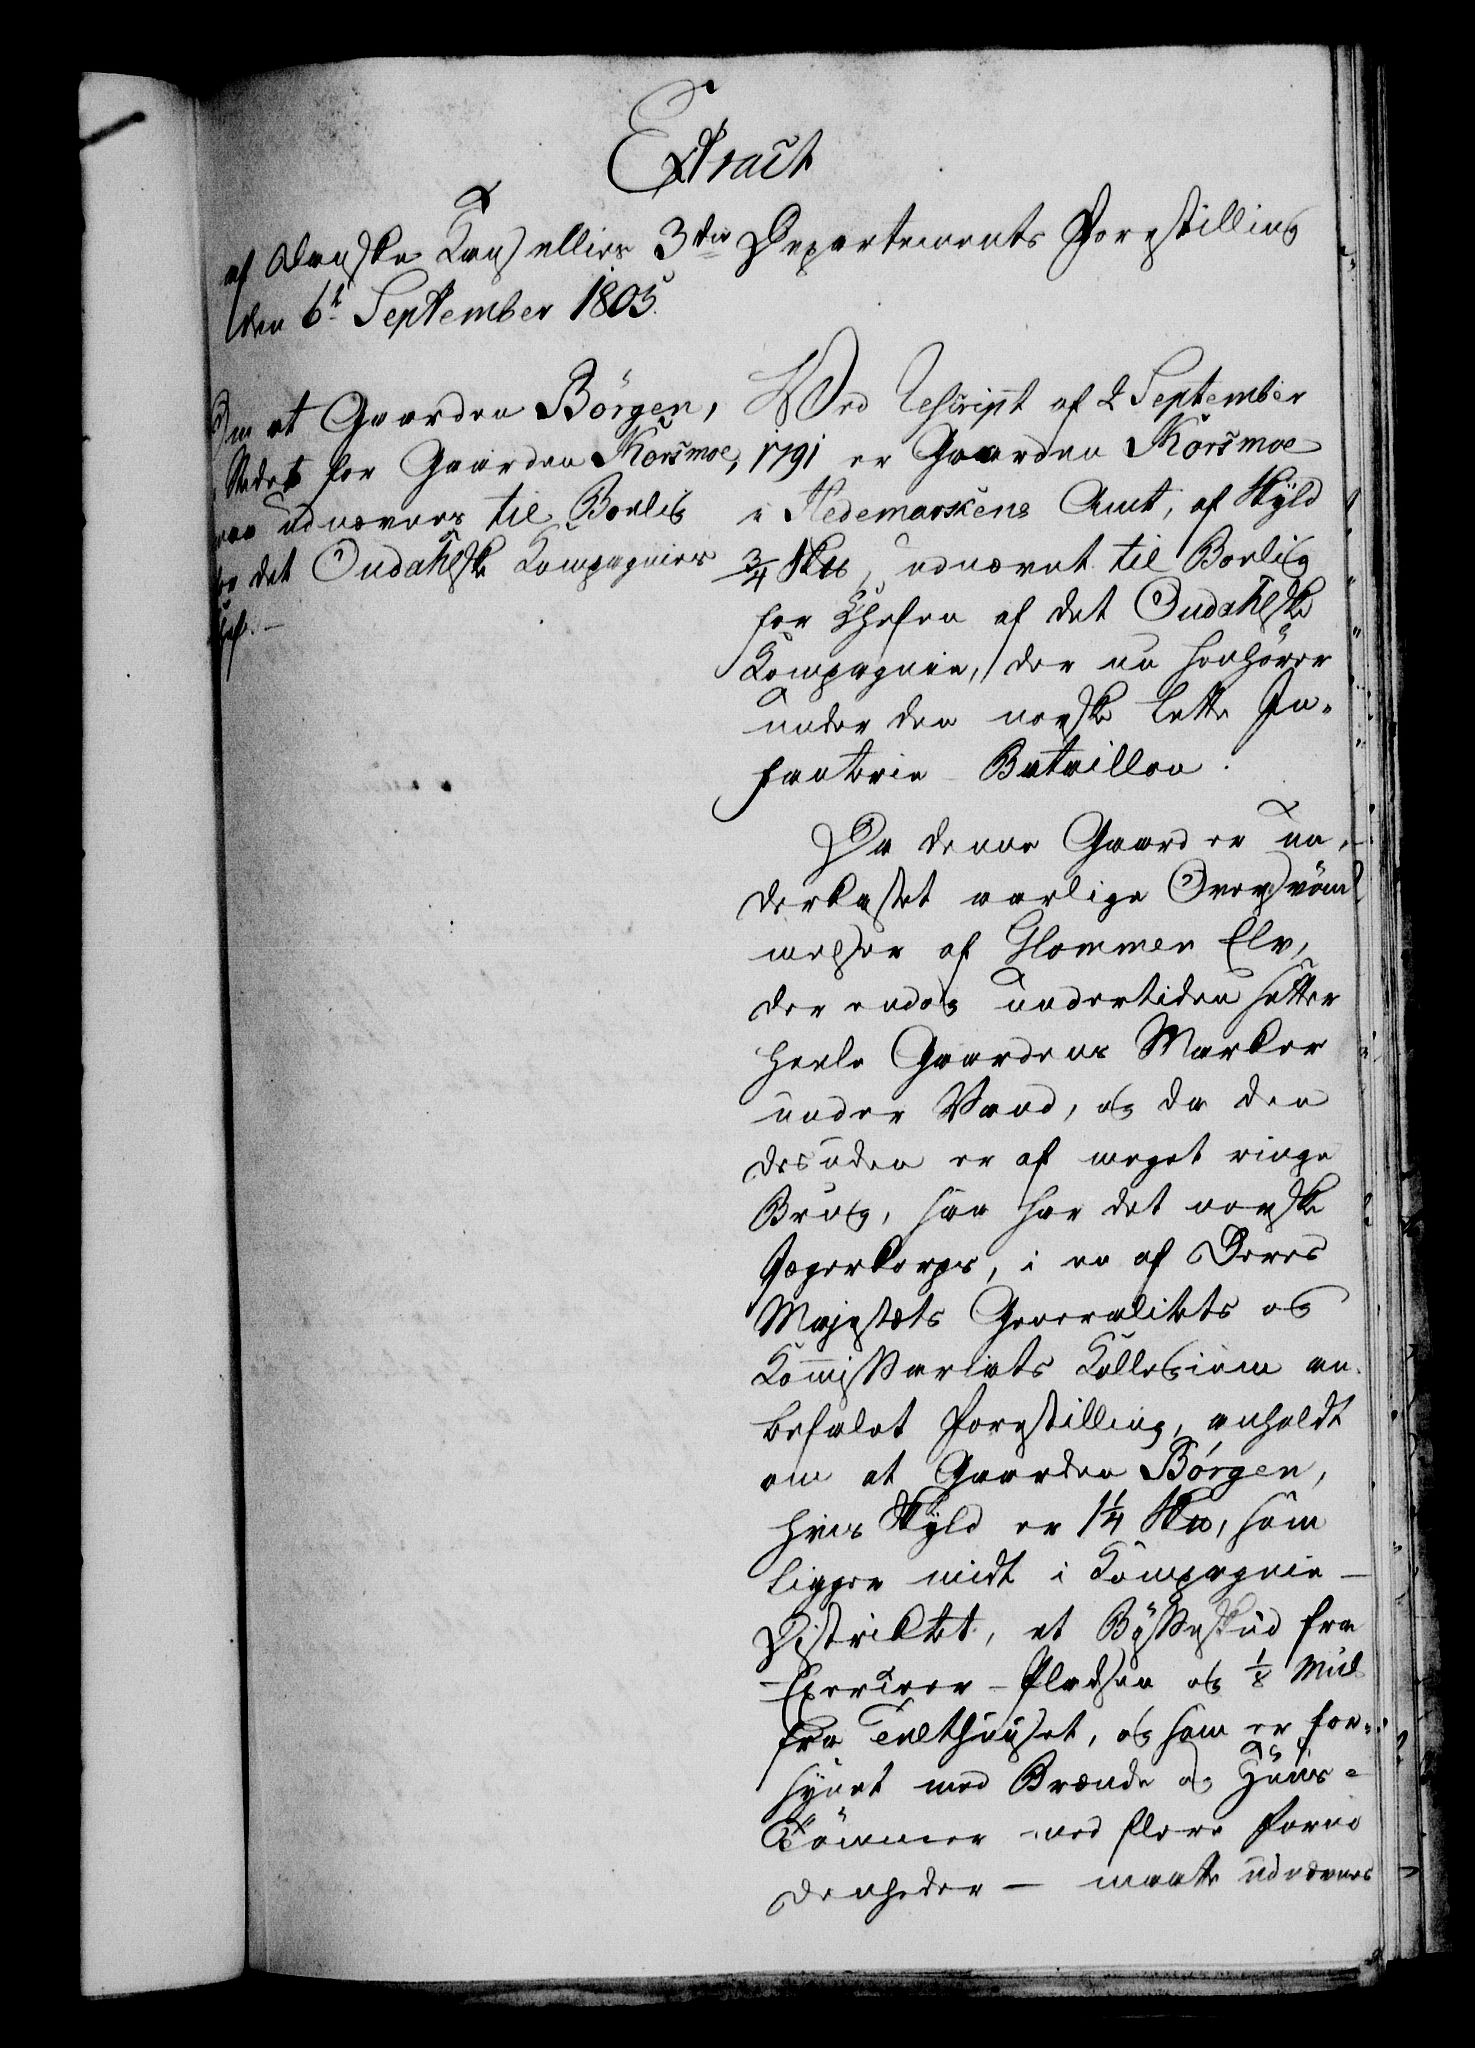 Extract
af Danske Kancelliets 3die Departements Forestilling
den 6te September 1805.
Om at Gaarden Börgen,
i Stedet for Gaarden Korsmoe,
maa udnævnes til Bolig
for det Oudahlske Kompagnies
Chef. –
Ved Rescript af 2 September
1791 er Gaarden Korsmoe
i Hedemarkens Amt, af Skyld
3/4 Sk℔, udnævnt til Bolig
for Chefen af det Oudahlske
Kompagnie, der nu henhörer
under den norske lette In-
fanterie-Bataillon.
Da denne Gaard er un-
derkastet aarlige Oversvöm-
melser af Glommen Elv,
der endog undertiden sætter
heele Gaardens Marker
under Vand, og da den
desuden er af meget ringe
Brug, saa har det norske
Jægerkorps, i en af Deres
Majestæts Generalitets og
Kommissariats Collegium an-
befalet Forestilling, anholdt
om at Gaarden Börgen,
hvis Skyld er 1¼ Sk℔, som
ligger midt i Kompagnie-
Distriktet, et Bösseskud fra
Exerceer-Pladsen og 1/8 Miil
fra Telthuuset, og som er for-
synet med Brænde og Huus-
Tömmer med flere Forno
denheder – maatte udnævnes